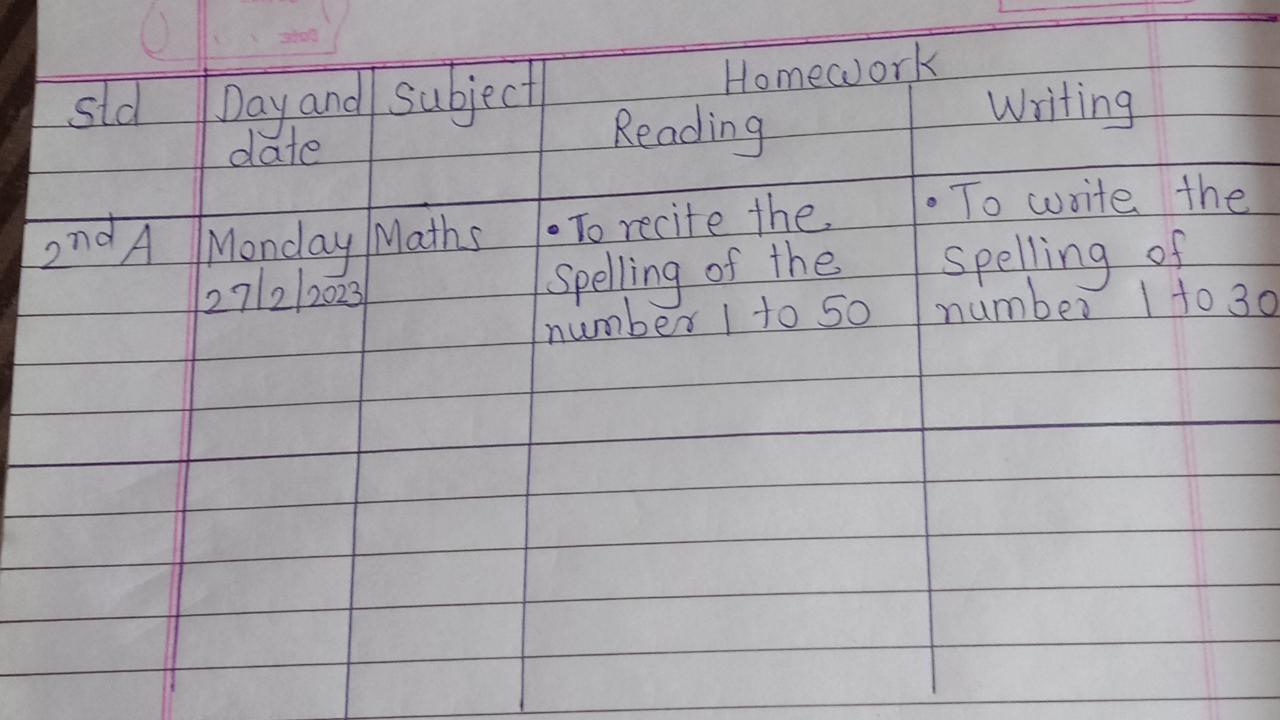 Homework
Std Day and Subject Reading Writing
date
2nd A Monday Maths • To recite the • To write the
27/2/2023 spelling of the spelling of
number 1 to 50 number 1 to 30